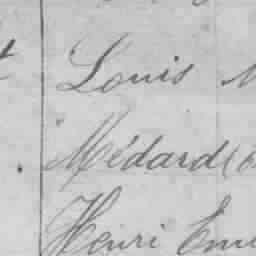 Louis
Médard
Henri